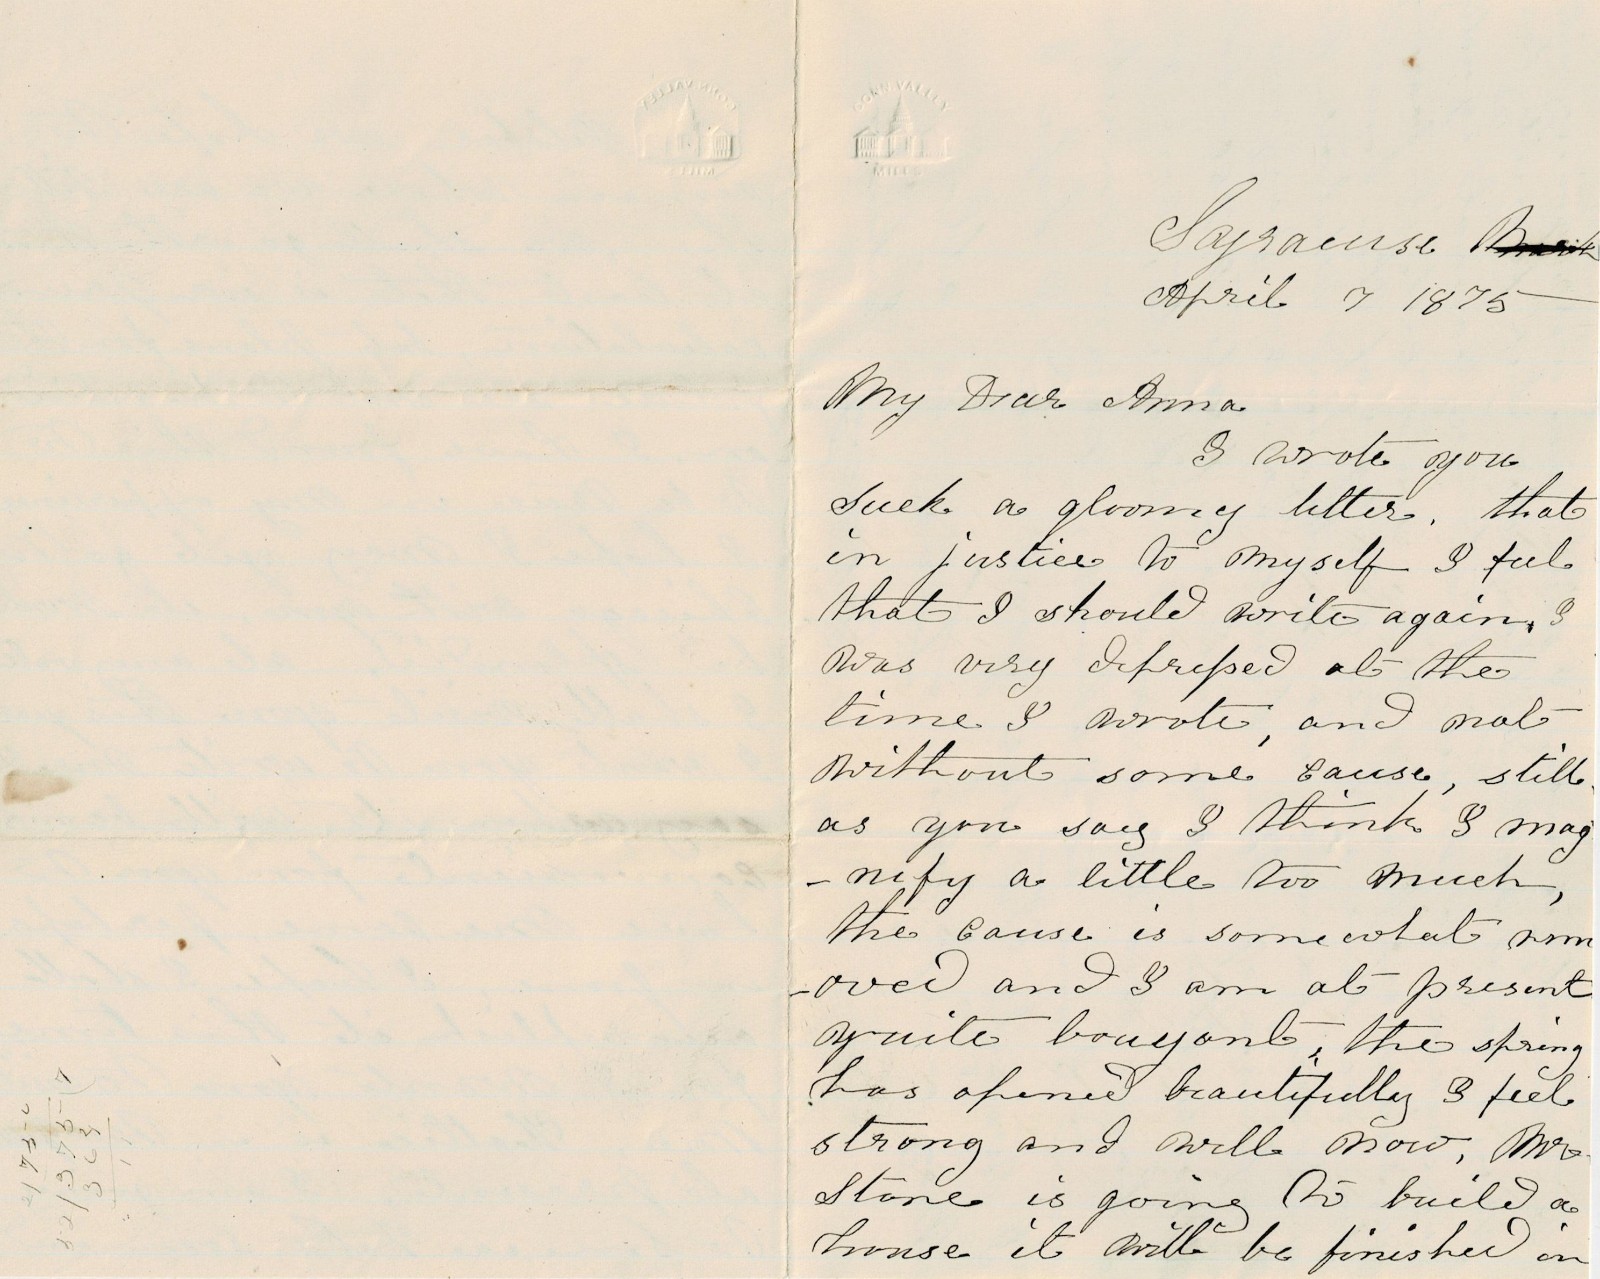 CONN VALLEY
MILLS
Sayracuse March
April 7 1875
My Dear Anna
I wrote you
such a gloomy letter. that
in justice to myself I feel
that I should write again, I
was very depressed at the
time I wrote, and not
without some cause, still
as you say I think I mag
-nify a little too much,
the cause is somewhat rem
-oved and I am at present
quite bouyant, the spring
has opened beautifully I feel
strong and well now, Mr
Stone is going to build a
house it will be finished in